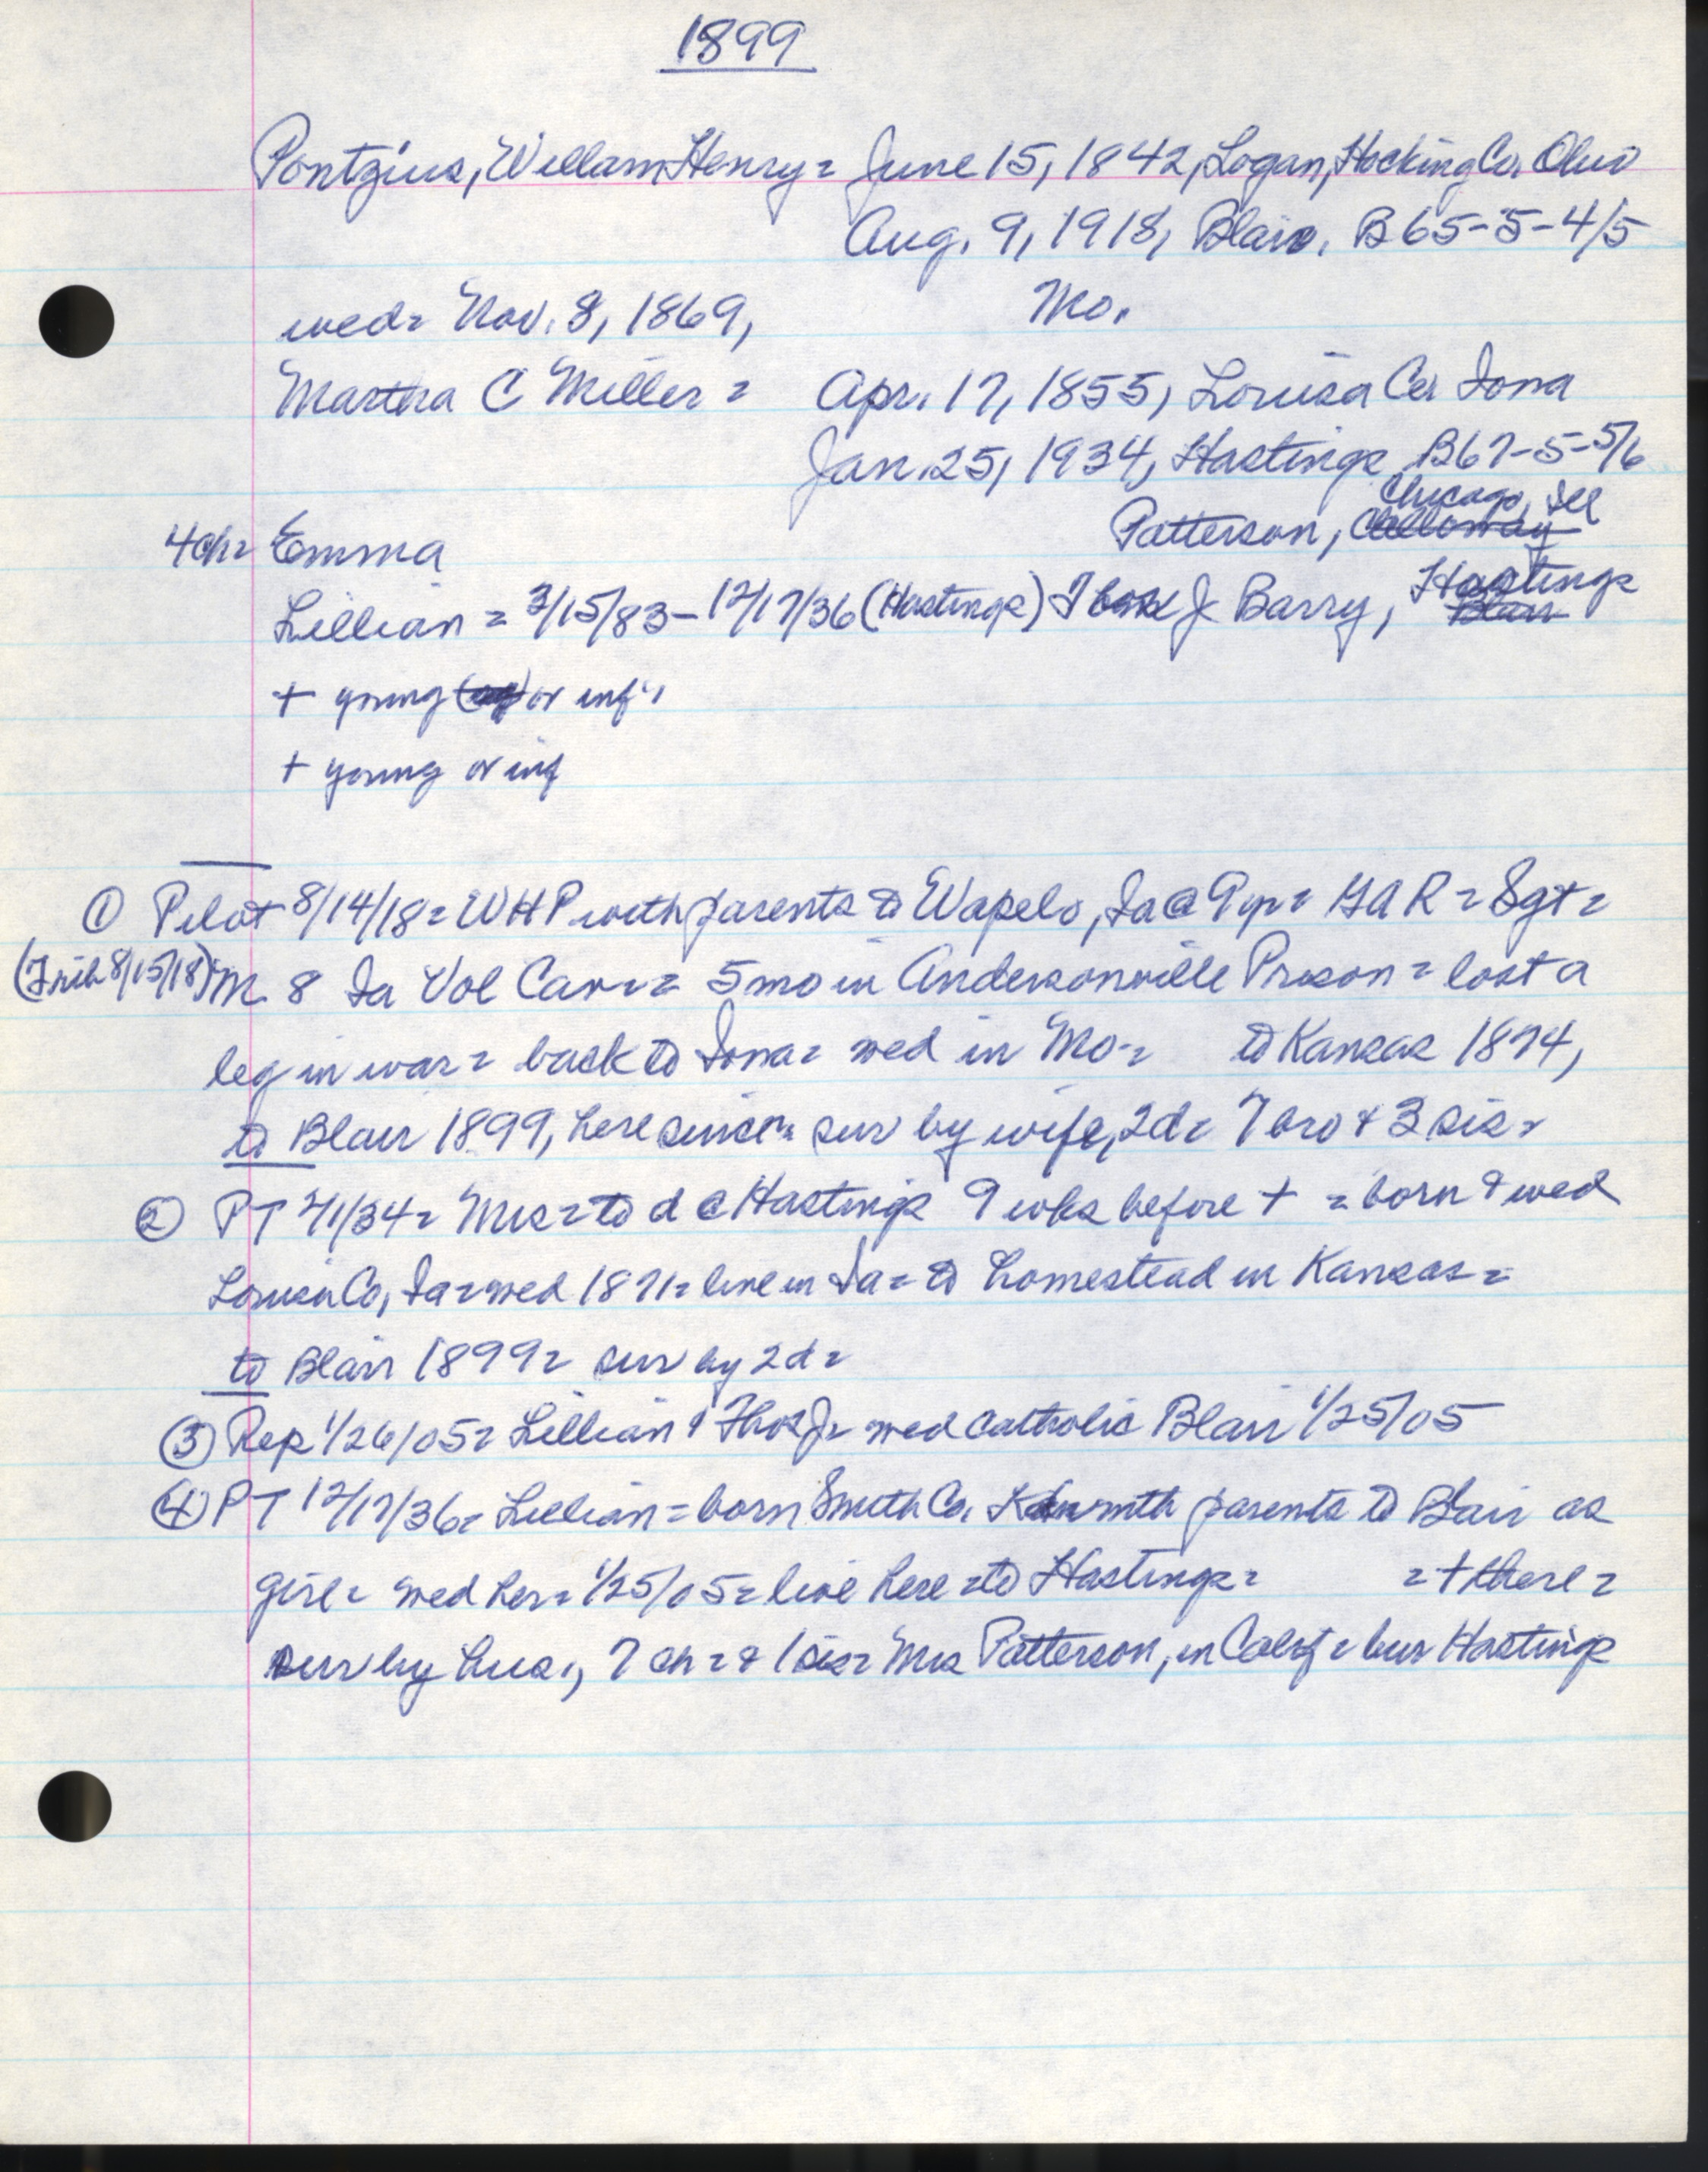 1899
Pontzius, William Henry = June 15, 1842, Logan, Hocking Co. Ohio
Aug. 9, 1918, Blair. B 65-5-4/5
wed = Nov. 8, 1869, Mo.
Martha C Miller = Apr. 17, 1855, Louisa Co. Iowa
Jan. 25, 1934, Hastings B67-5-5/6
Chicago, Ill
4 ch = Emma Patterson, Calloway
Hastings
Lillian = 3/15/83 - 12/17/36 (Hastings) Thos J Barry, Blair
+ young or inf.
+ young or inf
① Pilot 8/14/18 = WHP with parents to Wapelo, Ia @ 9 yr = GAR = Sgt =
(Trib 8/15/18) M. 8 Ia Vol Cav = 5 mo in Andersonville Prison = lost a
leg in war = back to Iowa = wed in Mo = to Kansas 1874,
to Blair 1899, here since = sur by wife, 2d = 7 bro & 3 sis =
② PT 2/1/34 = Mrs = to d @ Hastings 9 wks before + = born & wed
Louisa Co, Ia = wed 1871 = live in Ia = to homestead in Kansas =
to Blair 1899 = sur by 2d =
③ Rep 1/26/05 = Lillian & Thos J = wed Catholic Blair 1/25/05
④ PT 12/17/36 = Lillian = born Smith Co. Kan with parents to Blair as
girl = wed her = 1/25/05 = live here = to Hastings = = + there =
sur by hus., 7 ch = & 1 sis = Mrs Patterson, in Calif = bur Hastings